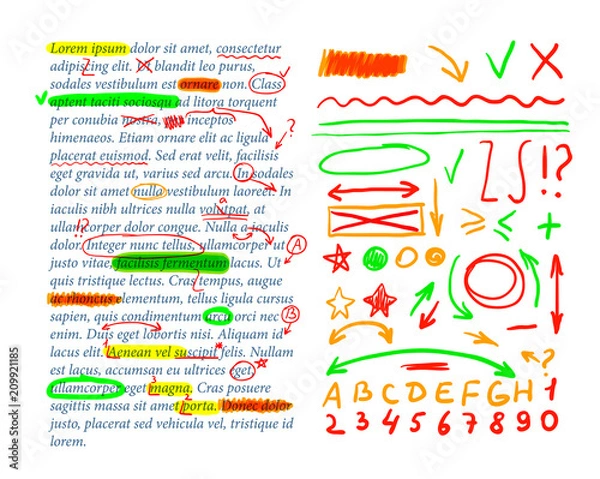 Lorem ipsum dolor sit amet, consectetur
adipiscing elit. Ut blandit leo purus,
sodales vestibulum est ornare non. Class
aptent taciti sociosqu ad litora torquent
per conubia nostra, inceptos
himenaeos. Etiam ornare elit ac ligula
placerat euismod. Sed erat velit, facilisis
eget gravida ut, varius sed arcu. In sodales
dolor sit amet nulla vestibulum laoreet. In
iaculis nibh ultrices nulla volutpat, at
ullamcorper dolor congue. Nulla a iaculis
dolor. Integer nunc tellus, ullamcorper ut
justo vitae, facilisis fermentum lacus. Ut
quis tristique lectus. Cras tempus, augue
ac rhoncus elementum, tellus ligula cursus
sapien, quis condimentum arcu orci nec
enim. Duis eget lobortis nisi. Aliquam id
lacus elit. Aenean vel suscipit felis. Nullam
est lacus, accumsan eu ultrices eget,
ullamcorper eget magna. Cras posuere
sagittis massa sit amet porta. Donec dolor
justo, placerat sed vehicula vitae, tristique id
lorem.
?
a
!?
A
B
1
3
2
!?
≥ ≤ +
?
A B C D E F G H 1
2 3 4 5 6 7 8 9 0
Adobe Stock | #209921185